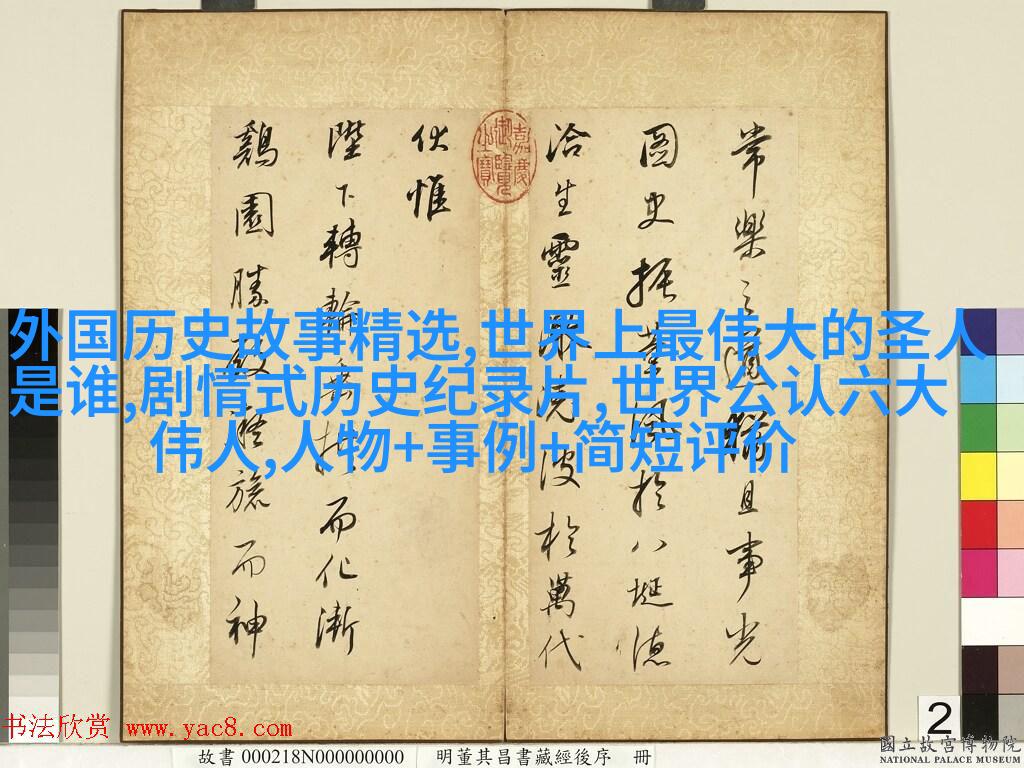 外国历史故事精选,世界上最伟大的圣人
是谁,剧情式历史纪录片,世界公认六大
伟人,人物+事例+简短评价
常樂之且事光
圖史振薰風於八埏德
洽生靈波於萬代
伏惟
陛下轉輪垂拱而化漸
鷄園勝殿凝旒而神
嘉慶御覽之寶
2
书法欣赏 www.yac8.com
故書 000218N000000000 明董其昌書藏經後序 冊
國立故宮博物院
NATIONAL PALACE MUSEUM